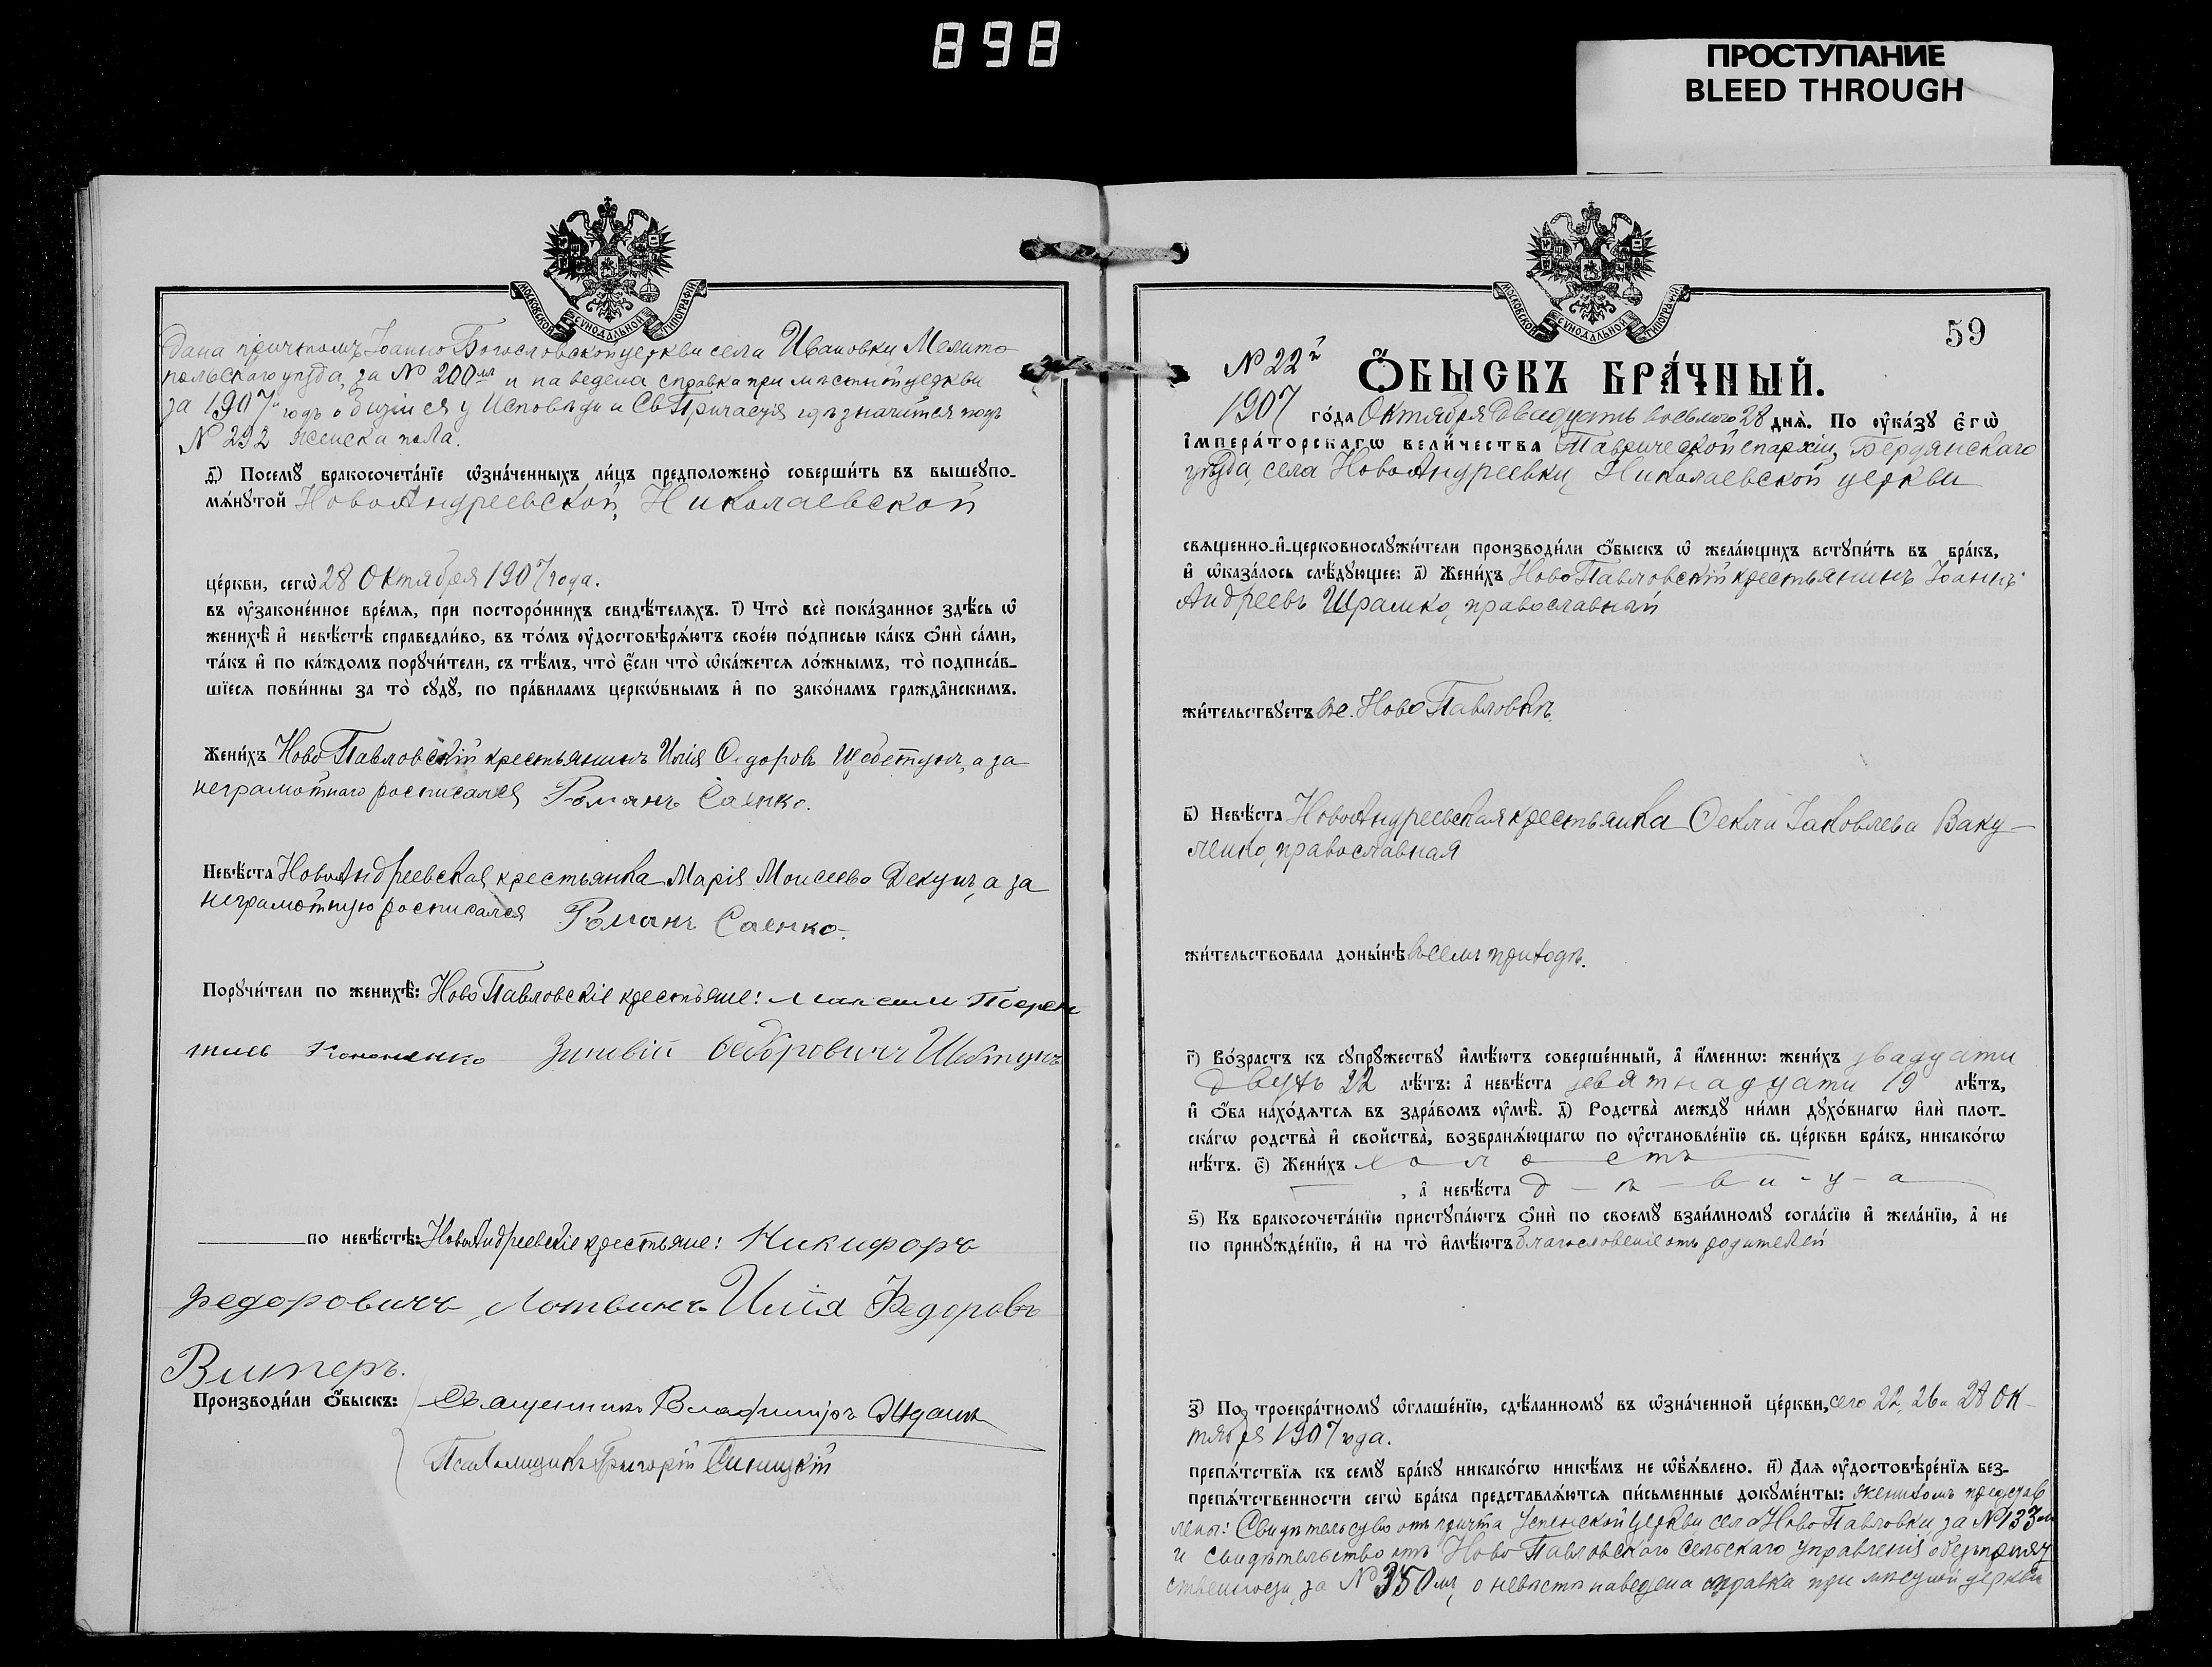 898
ПРОСТУПАНИЕ
BLEED THROUGH
МОСКОВСКОЙ СѴНОДАЛЬНОЙ ТИПОГРАФІИ
дана причтомъ Іоанно Богословской церкви села Ивановки Мелито-
польскаго уѣзда, за № 200мъ и наведена справка при мѣстной церкви
за 1907й годъ о бывшихся у Исповѣди и Св Причастія гдѣ значится подъ
№ 292 женска пола.
д҃) Посемꙋ̀ бракосочета́нїе ѡ҆зна́ченныхъ ли́цъ предположено̀ соверши́ть въ вышеꙋпо-
мѧ́нꙋтой НовоАндреевской, Николаевской
це́ркви, сегѡ̀ 28 Октября 1907 года.
въ ᲂу҆зако́ненное вре́мѧ, при посторо́ннихъ свидѣ́телѧхъ. і҃) Что̀ всѐ пока́занное здѣ́сь ѡ҆
женихѣ̀ и҆ невѣ́стѣ справедли́во, въ то́мъ ᲂу҆достовѣрѧ́ютъ свое́ю по́дписью ка́къ ѻ҆нѝ са́ми,
та́къ и҆ по ка́ждомъ порꙋчи́тели, съ тѣ́мъ, что̀ є҆́сли что̀ ѡ҆ка́жетсѧ ло́жнымъ, то̀ подписа́в-
шїесѧ пови́нны за то̀ сꙋдꙋ̀, по пра́виламъ церкѡ́внымъ и҆ по зако́намъ гражда́нскимъ.
Жени́хъ НовоПавловскій крестьянинъ Илія Ѳедоровъ Щебетунъ, а за
неграмотнаго росписался Романъ Саенко.
Невѣ́ста НовоАндреевская крестьянка Марія Моисеева Декунъ, а за
неграмотную росписался Романъ Саенко.
Порꙋчи́тели по женихѣ̀: НовоПавловскіе крестьяне: Максим
Кононенко Зиновій Ѳедоровичъ Щебетунъ
по невѣ́стѣ: НовоАндреевскіе крестьяне: Никифоръ
Федоровичъ Литвинъ Илія Федоровъ
Витеръ.
Производи́ли ѻ҆́быскъ: Священникъ Владиміръ
Псаломщикъ Григорій Синицкій
МОСКОВСКОЙ СѴНОДАЛЬНОЙ ТИПОГРАФІИ
59
№ 22й
Ѻ҆БЫСКЪ БРА́ЧНЫЙ.
1907 го́да Октября Двадцать восьмого 28 днѧ̀. По ᲂу҆ка́зꙋ є҆гѡ̀
і҆мпера́торскагѡ вели́чества Таврической епархіи, Бердянскаго
уѣзда, села НовоАндреевки, Николаевской церкви
свѧщенно-и҆-церковнослꙋжи́тели производи́ли ѻ҆́быскъ ѡ҆ жела́ющихъ встꙋпи́ть въ бра́къ,
и҆ ѡ҆каза́лось слѣ́дꙋющее: а҃) Жени́хъ НовоПавловскій крестьянинъ Іоаннъ
Андреевъ Шрамко, православный
жи́тельствꙋетъ въ с. НовоПавловкѣ.
б҃) Невѣ́ста НовоАндреевская крестьянка Ѳекла Іаковлева Ваку-
ленко, православная
жи́тельствовала доны́нѣ въ семъ приходѣ.
г҃) Во́зрастъ къ сꙋпрꙋ́жествꙋ и҆мѣ́ютъ соверше́нный, а҆ и҆́меннѡ: жени́хъ двадцати
двухъ 22 лѣ́тъ: а҆ невѣ́ста девятнадцати 19 лѣ́тъ,
и҆ ѻ҆́ба нахо́дѧтсѧ въ здра́вомъ ᲂу҆мѣ̀. д҃) Родства̀ междꙋ̀ ни́ми дꙋхо́внагѡ и҆лѝ плот-
ска́гѡ родства̀ и҆ свойства̀, возбранѧ́ющагѡ по ᲂу҆становле́нїю св. це́ркви бра́къ, никако́гѡ
нѣ́тъ. є҃) Жени́хъ холостъ
, а҆ невѣ́ста дѣвица
ѕ҃) Къ бракосочета́нїю пристꙋпа́ютъ ѻ҆нѝ по своемꙋ̀ взаи́мномꙋ согла́сїю и҆ жела́нїю, а҆ не
по принꙋжде́нїю, и҆ на то̀ и҆мѣ́ютъ благословеніе отъ родителей
з҃) По троекра́тномꙋ ѡ҆глаше́нїю, сдѣ́ланномꙋ въ ѡ҆зна́ченной це́ркви, сего 22, 26 и 28 Ок-
тября 1907 года.
препѧ́тствїѧ къ семꙋ̀ бра́кꙋ никако́гѡ никѣ́мъ не ѡ҆б̾ѧ́влено. и҃) Длѧ ᲂу҆достовѣре́нїѧ без-
препѧ́тственности сегѡ̀ бра́ка представлѧ́ютсѧ пи́сьменные докꙋме́нты: женихомъ представ
лены: Свидѣтельство отъ причта Успенской Церкви села НовоПавловки за №133мъ
и свидѣтельство отъ НовоПавловскаго Сельскаго Управленія о безпрепят
ственности, за №350мъ, о невѣстѣ наведена справка при мѣстной церкви